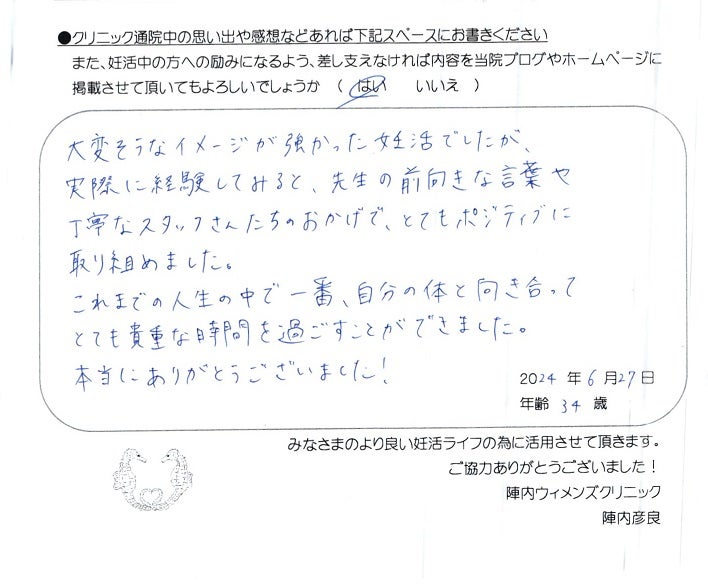 ●クリニック通院中の思い出や感想などあれば下記スペースにお書きください
また、妊活中の方への励みになるよう、差し支えなければ内容を当院ブログやホームページに
掲載させて頂いてもよろしいでしょうか （ はい いいえ ）
大変そうなイメージが強かった妊活でしたが、
実際に経験してみると、先生の前向きな言葉や
丁寧なスタッフさんたちのおかげで、とてもポジティブに
取り組めました。
これまでの人生の中で一番、自分の体と向き合って
とても貴重な時間を過ごすことができました。
本当にありがとうございました!
2024 年 6 月 27 日
年齢 34 歳
みなさまのより良い妊活ライフの為に活用させて頂きます。
ご協力ありがとうございました！
陣内ウィメンズクリニック
陣内彦良